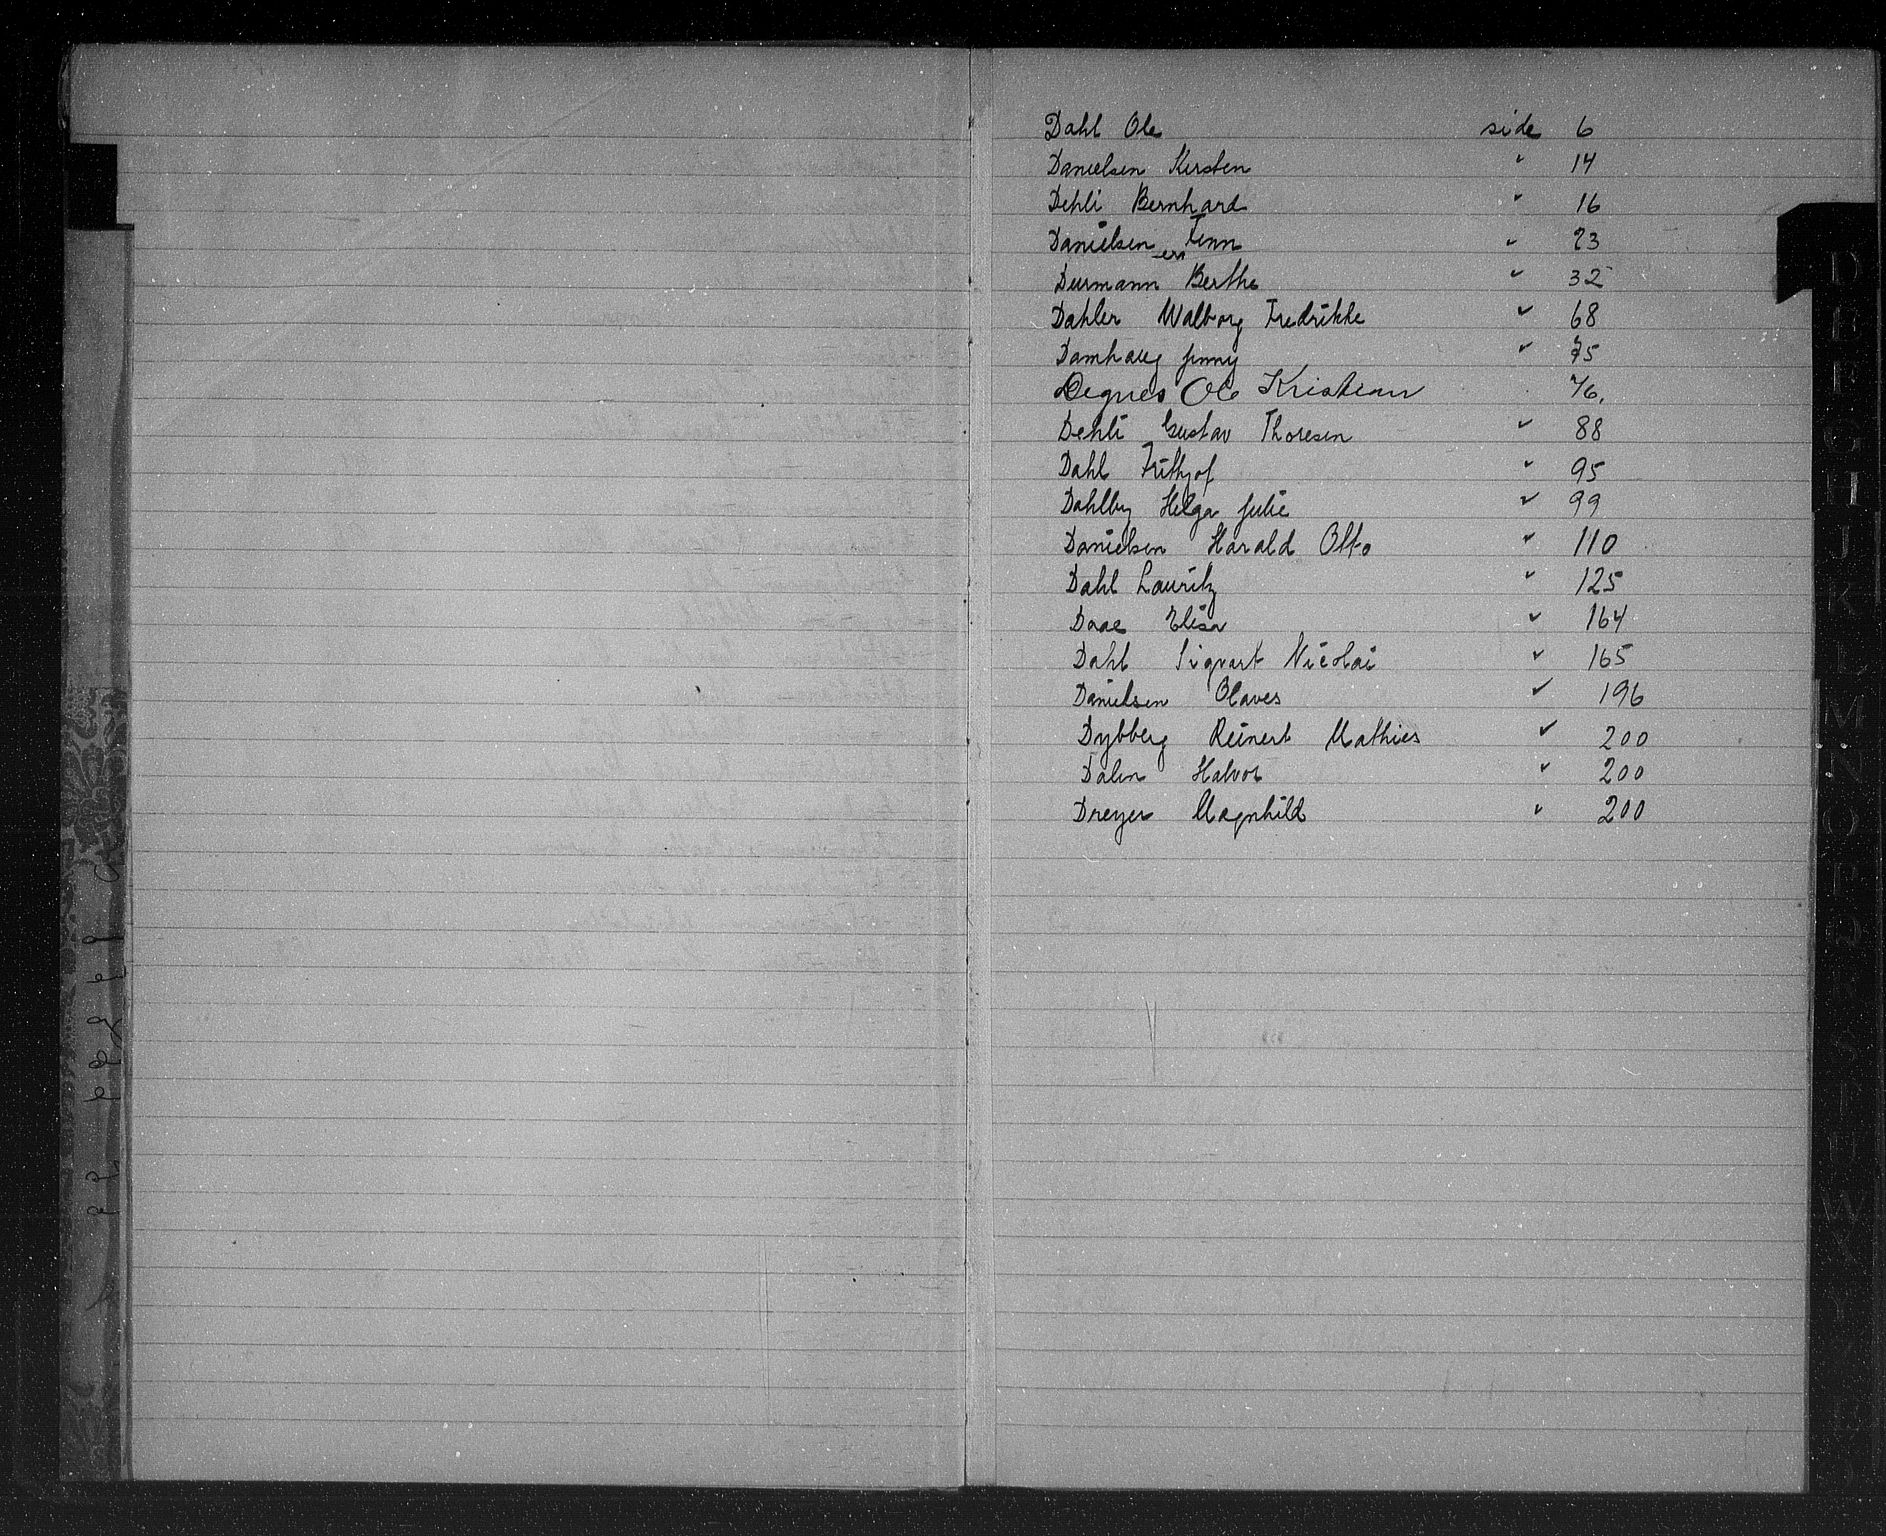 Dahl Ole side 6
Danielsen Kirsten " 14
Dehli Bernhard " 16
Danielsen Finn " 23
Durmann Berthe " 32
Dahler Walborg Fredrikke " 68
Damhaug Jenny " 75
Degnes Ole Kristian 76.
Dehli Gustav Thoresen " 88
Dahl Frithjof " 95
Dahlby Helga Julie " 99
Danielsen Harald Otto " 110
Dahl Lauritz " 125
Daae Elisa " 164
Dahl Sigvart Nicolai " 165
Danielsen Olaves " 196
Dybberg Reinert Mathies " 200
Dalen Halvor " 200
Dreyer Magnhild " 200